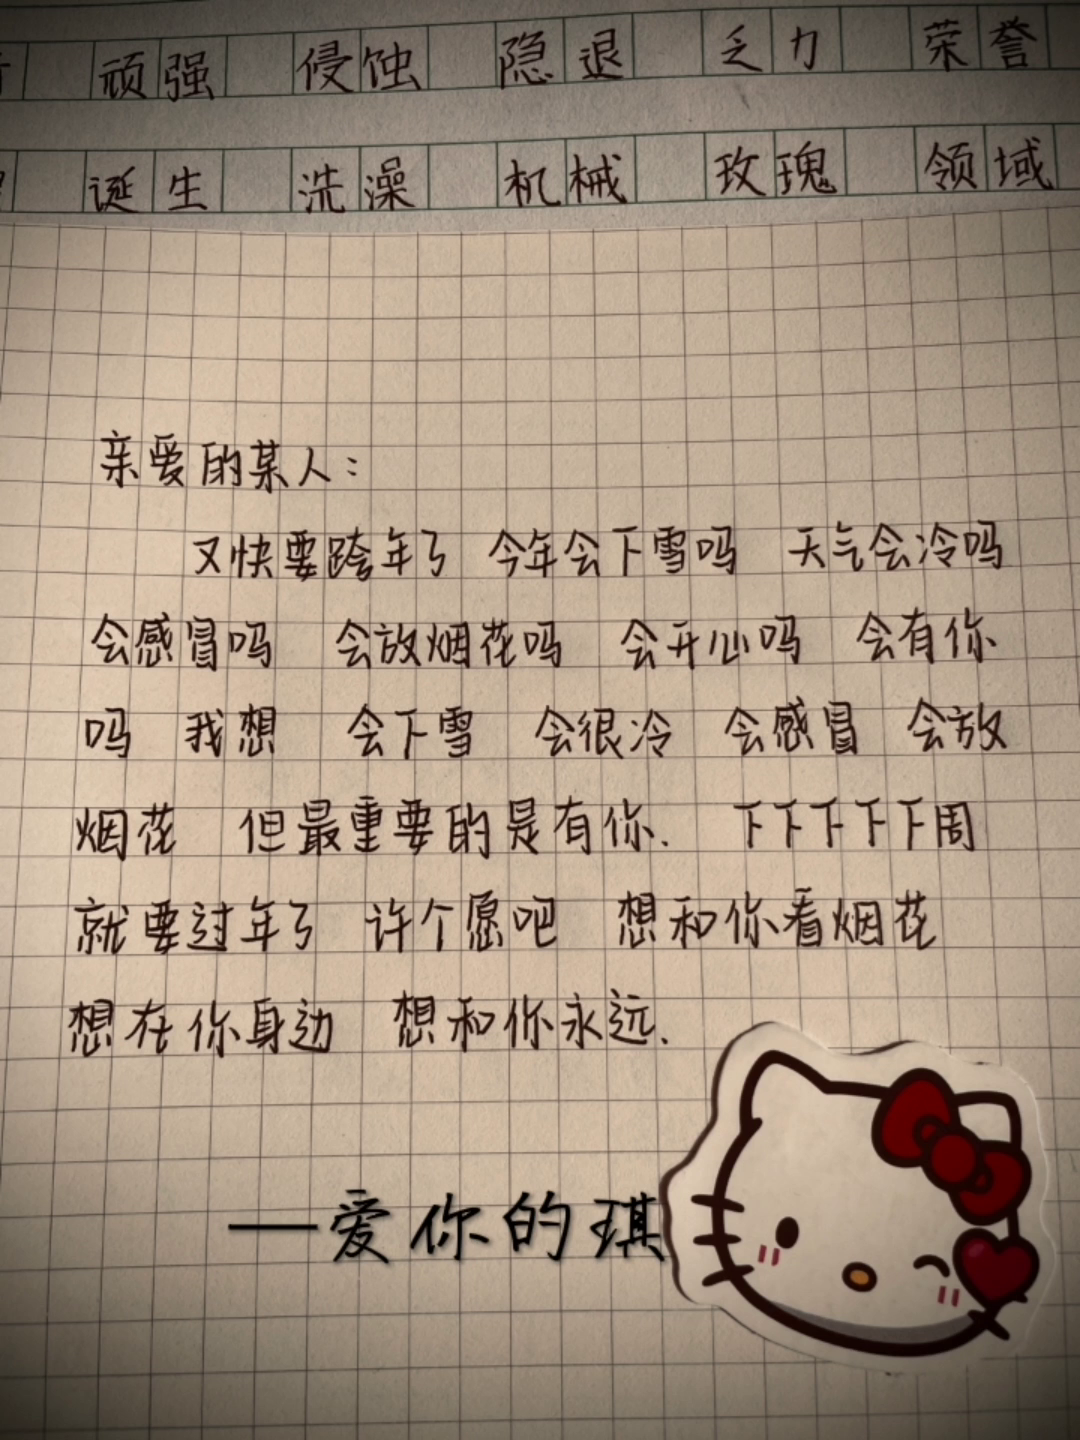 顽强 侵蚀 隐退 乏力 荣誉
诞生 洗澡 机械 玫瑰 领域
亲爱的某人：
又快要跨年了 今年会下雪吗 天气会冷吗
会感冒吗 会放烟花吗 会开心吗 会有你
吗 我想 会下雪 会很冷 会感冒 会放
烟花 但最重要的是有你. 下下下下下周
就要过年了 许个愿吧 想和你看烟花
想在你身边 想和你永远.
—爱你的琪